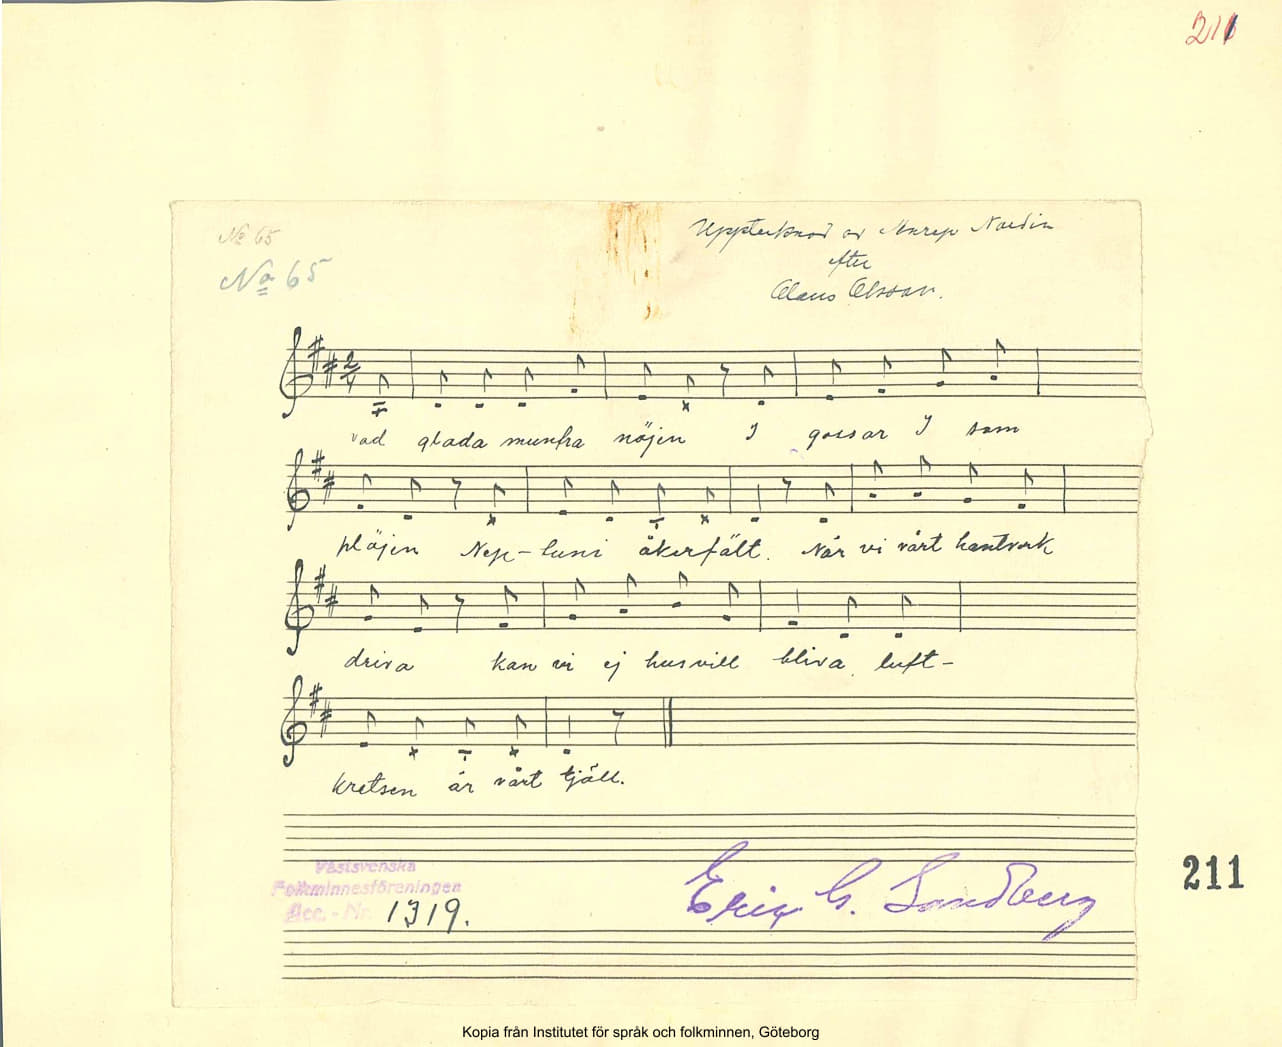 211
No 65
No 65
Upptecknad av Anrep Nordin
efter
Claus Olsson.
2/4
vad glada munfra nöjen I gossar I som
plöjen Nep-tuni åkerfält. När vi vårt hantverk
driva kan vi ej husvill bliva luft-
kretsen är vårt tjäll.
Västsvenska
Folkminnesföreningen
Acc. - Nr. 1319.
Eric G. Sandberg
211
Kopia från Institutet för språk och folkminnen, Göteborg